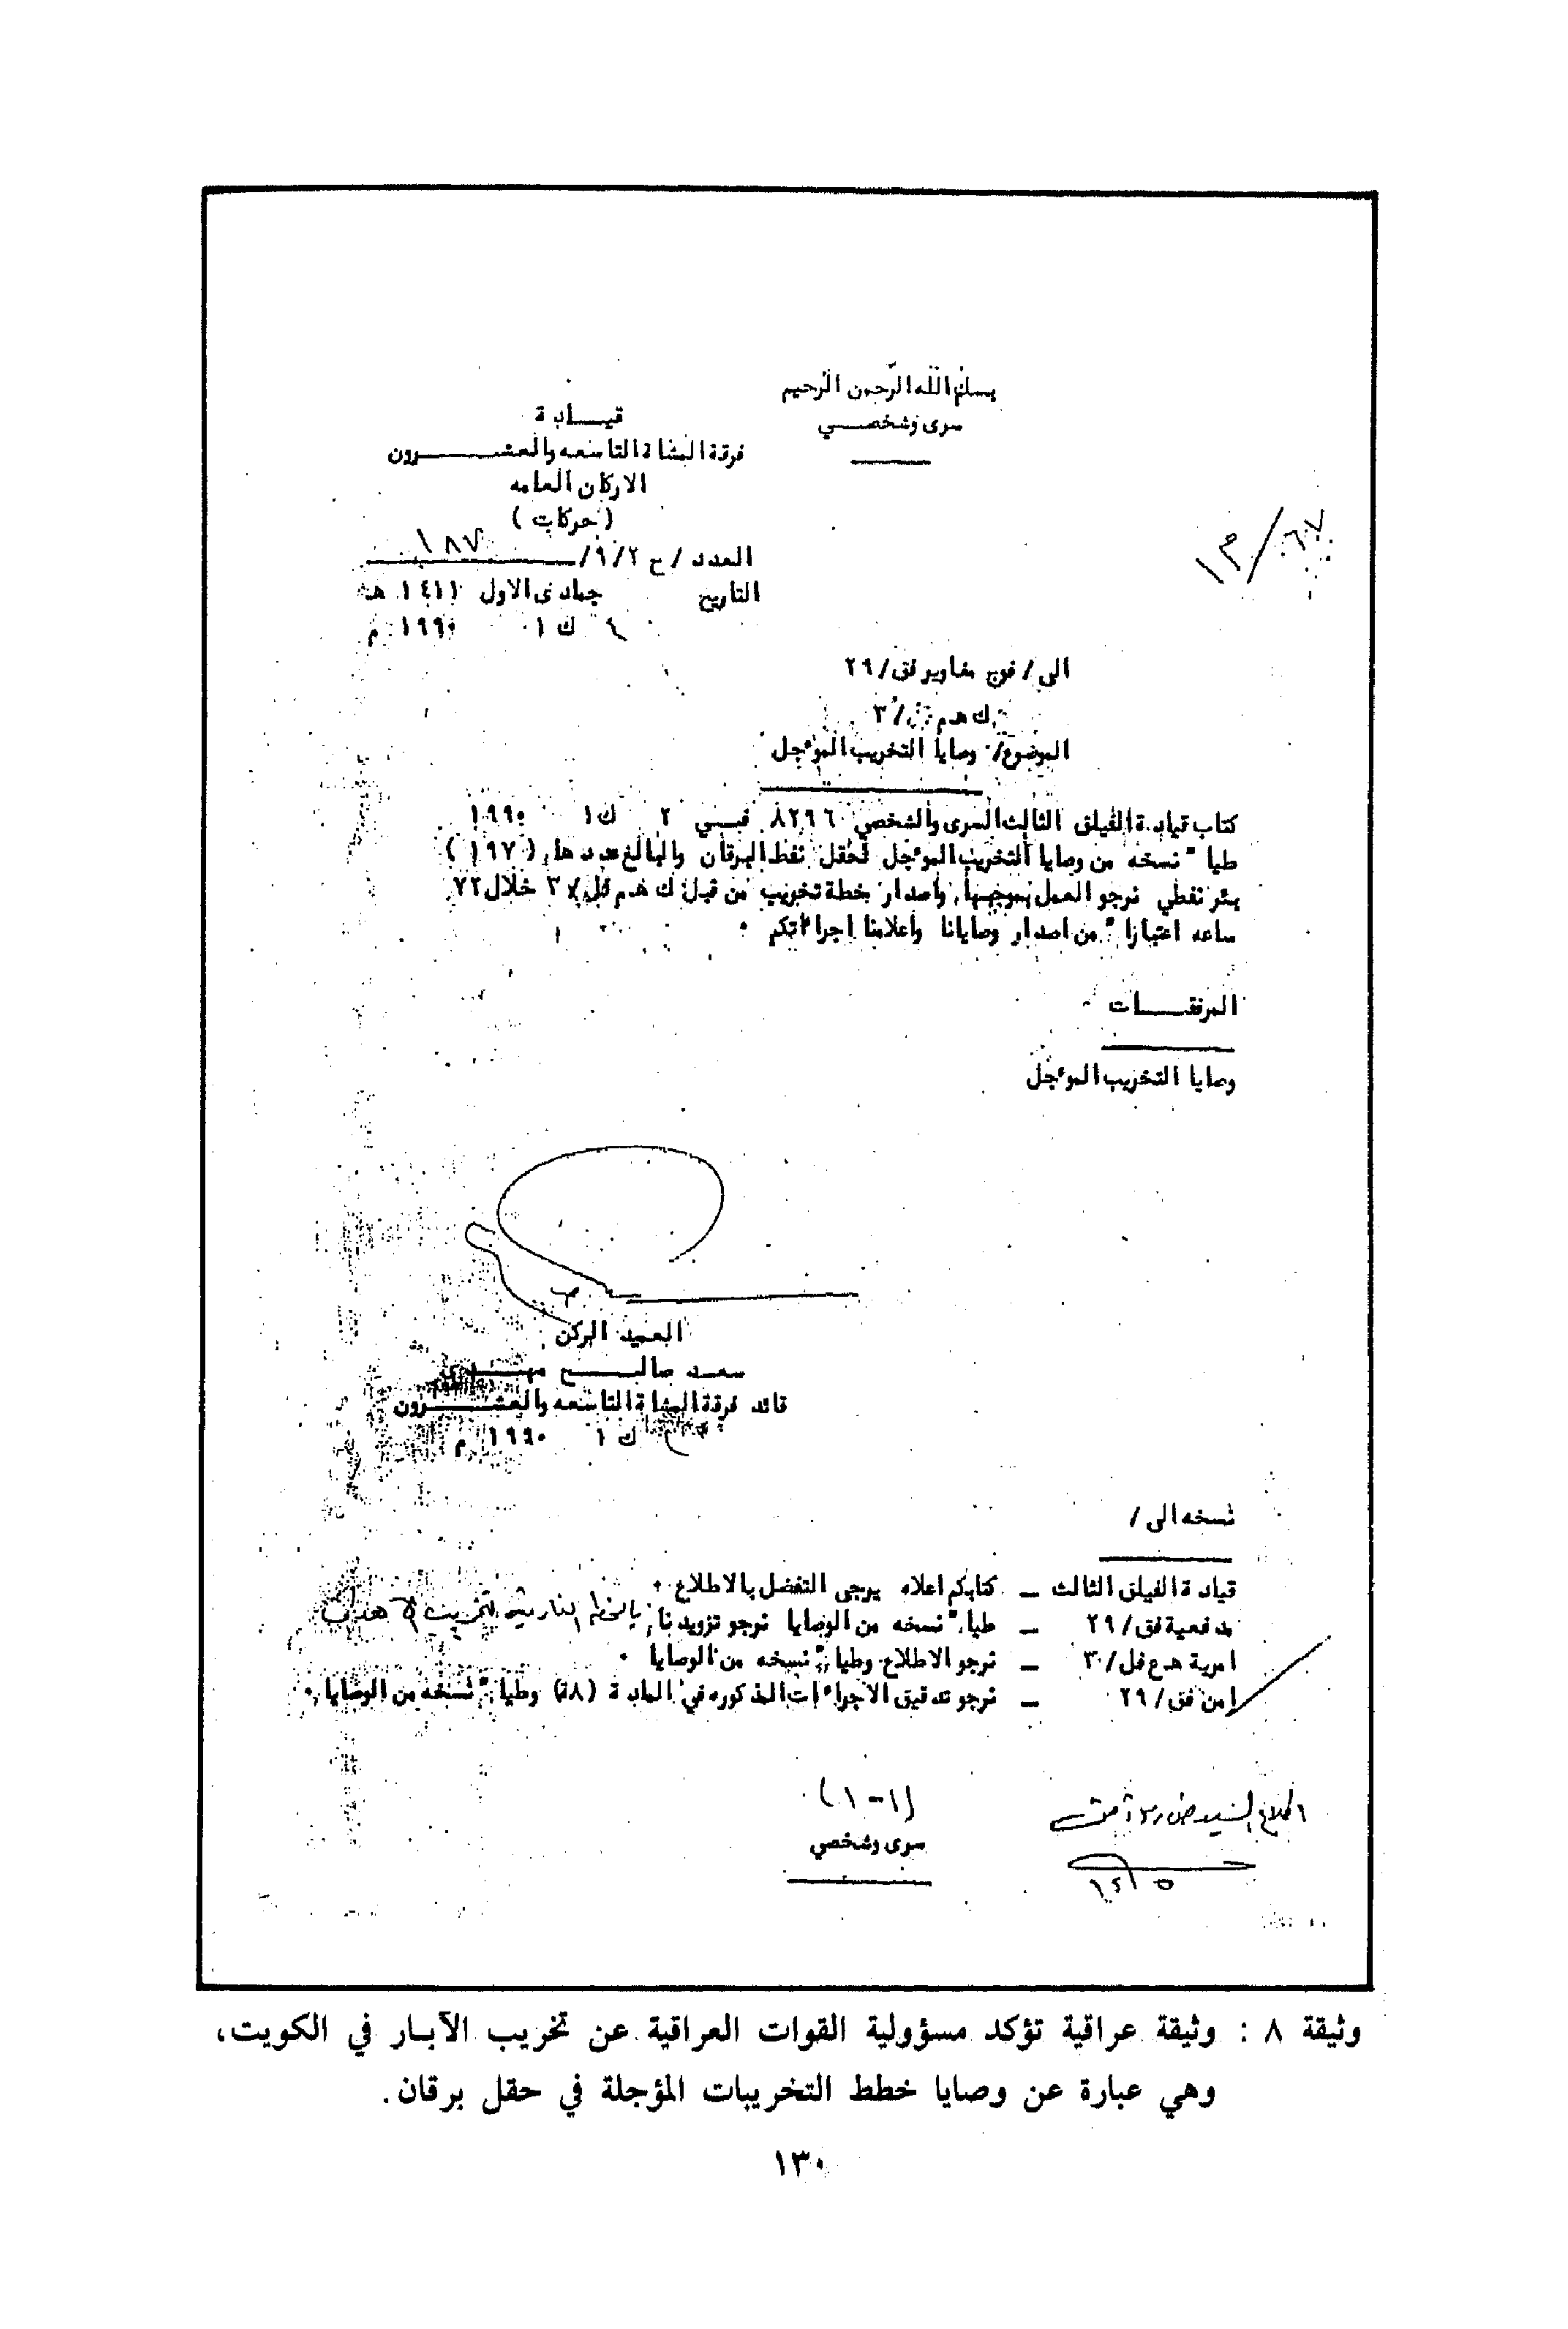 بسم الله الرحمن الرحيم
سرى وشخصـــي
قيـــادة
فرقة المشاة التاسعه والعشـــــرون
الاركان العامه
(حركات)
العدد / ح ٩/٢/ ١٨٧
التاريخ جمادى الاول ١٤١١ هـ
٤ ك ١ ١٩٩٠ م
الى / فوج مغاوير فق/٢٩
ك هـ م
الموضوع/ وصايا التخريب الموءجل
كتاب قيادة الفيلق الثالث السرى والشخصي ٨٢٩٦ فـــي ٢ ك١ ١٩٩٠
طيا" نسخه من وصايا التخريب الموءجل لحقل نفط البرقان والبالغ عددها (١٩٧)
بئر نفطي نرجو العمل بموجبها واصدار خطة تخريب من قبل ك هـ م خلال ٧٢
ساعه اعتبارا" من اصدار وصايانا واعلامنا اجراءاتكم .
المرفقـــات
وصايا التخريب الموءجل
العميد الركن
سعـد صالـــح مهـــدى
قائد فرقة المشاة التاسعه والعشـــرون
ك ١ ١٩٩٠ م
نسخه الى /
قيادة الفيلق الثالث – كتابكم اعلاه يرجى التفضل بالاطلاع .
مدفعية فق/٢٩ – طيا" نسخه من الوصايا نرجو تزويدنا بالخطط النارية لتخريب الاهداف
امرية هـ ع فل/٣ – نرجو الاطلاع وطيا" نسخه من الوصايا .
امن فق/٢٩ – نرجو تدقيق الاجراءات المذكوره في المادة وطيا" نسخه من الوصايا .
(١-١)
سرى وشخصي
وثيقة ٨ : وثيقة عراقية تؤكد مسؤولية القوات العراقية عن تخريب الآبـار في الكويت،
وهي عبارة عن وصايا خطط التخريبات المؤجلة في حقل برقان.
١٣٠